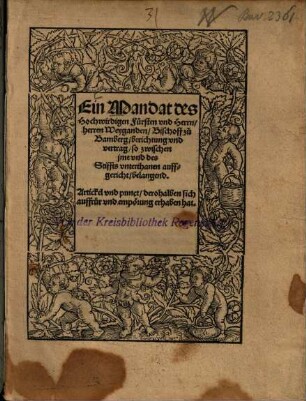 Bav. 2361
Ein Mandat des
Hochwirdigen Fürsten vnd Herrn/
herren Weyganden/ Bischoff zů
Bamberg/ berichtung vnd
vertrag/ so zwischen
jme vnd des
Stiffts vnterthanen auff-
gericht/ belangend.
Artickel vnd punct/ derohalben sich
auffrůr vnd empörung erhaben hat.
der Kreisbibliothek Regensburg